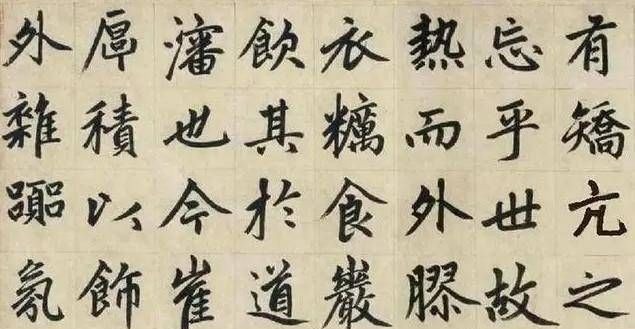 有矯亢之
忘乎世故
熱而外膠
衣糲食巖
飲其於道
瀋也今崔
厚積以飾
外雜囂氛